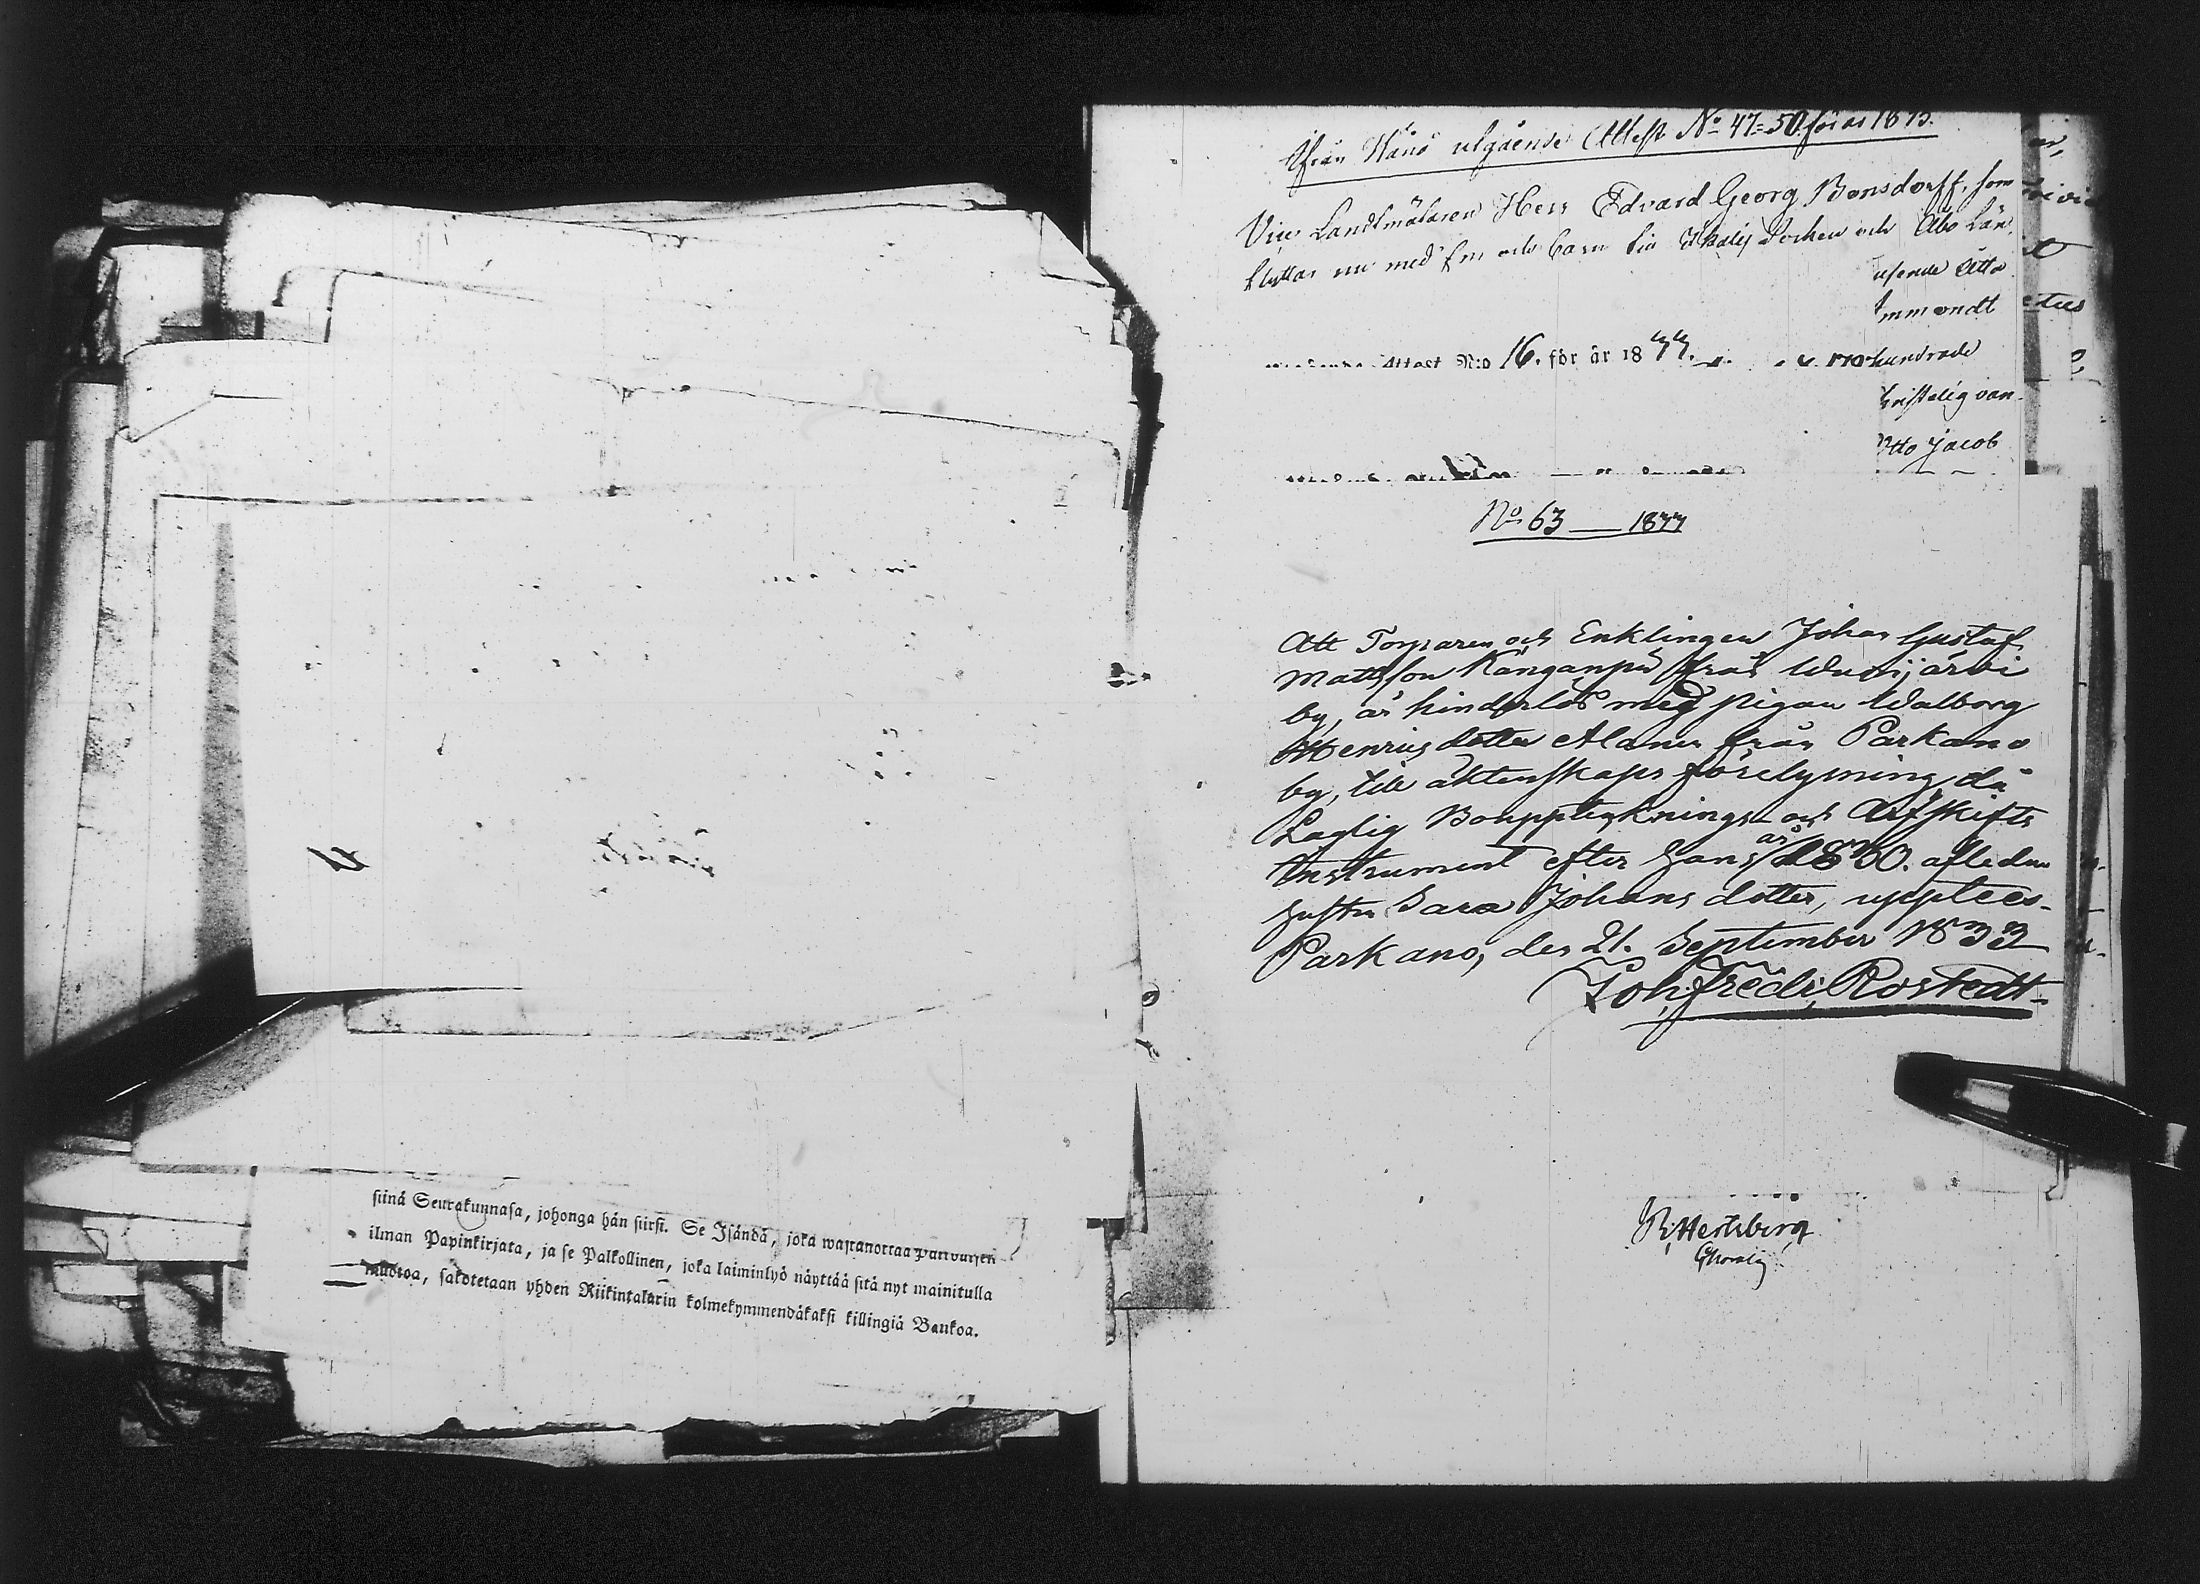 siinä Seurakunnasa, johonga hän siirsi. Se Isändä, joka wastanottaa Palkollisen
ilman Papinkirjata, ja se Palkollinen, joka laiminlyö näyttää sitä nyt mainitulla
muotoa, sakotetaan yhden Riikintalarin kolmekymmendäkaksi killingiä Bankoa.
Ifrån Kånö utgående Attest No 47=50 för år 1875.
Vice Landtmätaren Herr Edvard Georg Bonsdorff, som
flyttar nu med fru och barn till Ikalis Socken och Åbo Län.
Åtta
mmondt
Attest N:o 16. för år 1877.
hundrade
van
Otto Jacob
No 63 — 1877
Att Torparen och Enklingen Johan Gustaf
Mattsson Kånganpä från Wuorijärvi
by, är hinderlös med pigan Walborg
Henricsdotter Alanen från Parkano
by, till äktenskaps förelysning, då
Laglig Bouppteknings och Arfskifts
Instrument efter hans år 1830. afledne
hustru Sara Johans dotter, upptees.
Parkano, den 21. September 1833
Joh. Fredr. Rostedt.
R. Hertzberg